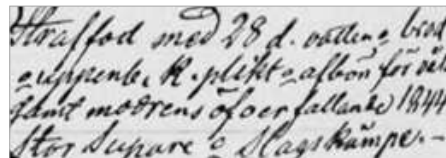 Straffad med 28 d. vatten o bröd
o uppenb. k. plikt o afbön för våld
samt modrens öfverfallande 1844
Stor Supare o Slagskämpe. –